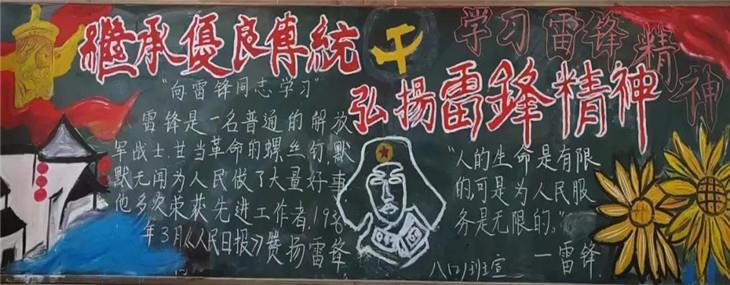 繼承優良傳統
學习雷锋精神
弘揚雷鋒精神
"向雷锋同志学习"
雷锋是一名普通的解放
军战士,甘当革命的螺丝钉,默
默无闻为人民做了大量好事
他多次荣获先进工作者,196
年3月《人民日报》赞扬雷锋
"人的生命是有限
的,可是为人民服
务是无限的。"
一雷锋
八(1)班宣